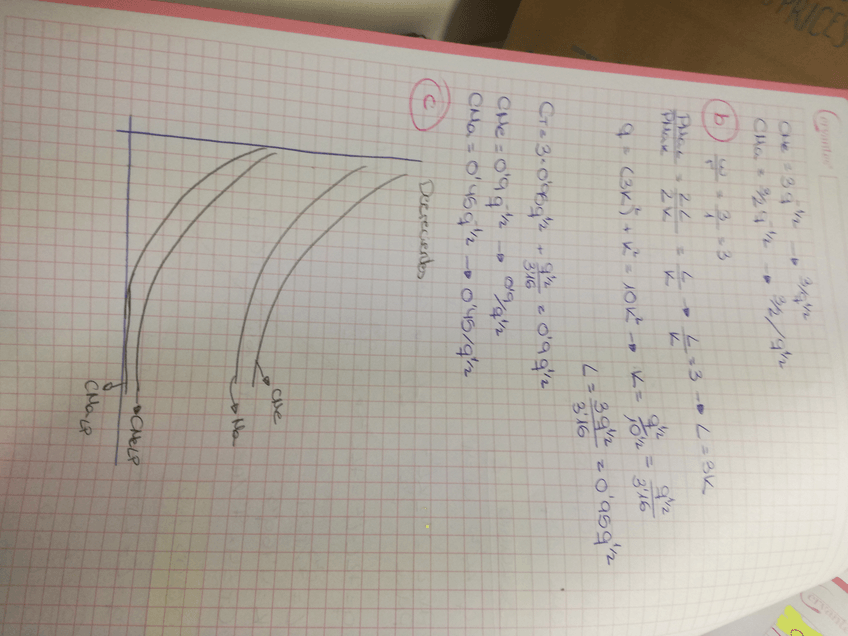 PRICES
CMe = 3q^-1/2 → 3/q^1/2
CMa = 3/2 q^-1/2 → 3/2/q^1/2
b) w/r = 3/1 = 3
PMaL/PMaK = 2L/2K = L/K → L/K = 3 → L = 3K
q = (3K)^2 + K^2 = 10K^2 → K = q^1/2/10^1/2 = q^1/2/3'16
L = 3q^1/2/3'16 = 0'95q^1/2
CT = 3·0'95q^1/2 + q^1/2/3'16 = 0'9q^1/2
CMe = 0'9q^-1/2 → 0'9/q^1/2
CMa = 0'45q^-1/2 → 0'45/q^1/2
c) Decrecientes
CMe
Ma
CMeLP
CMaLP